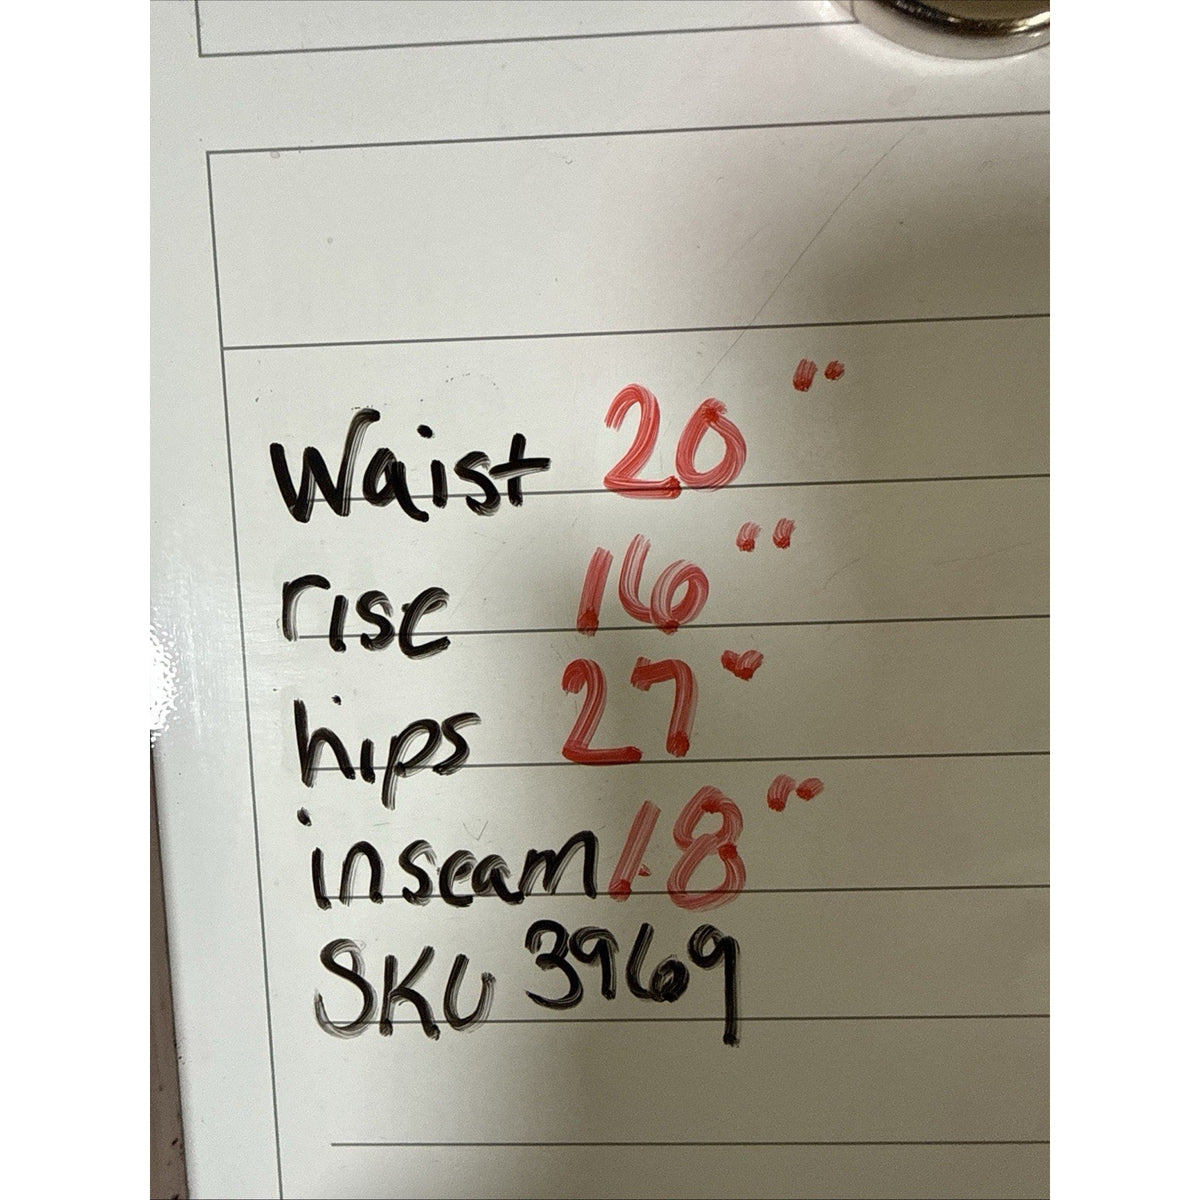 Waist 20"
rise 16"
hips 27"
inseam 18"
SKU 3969